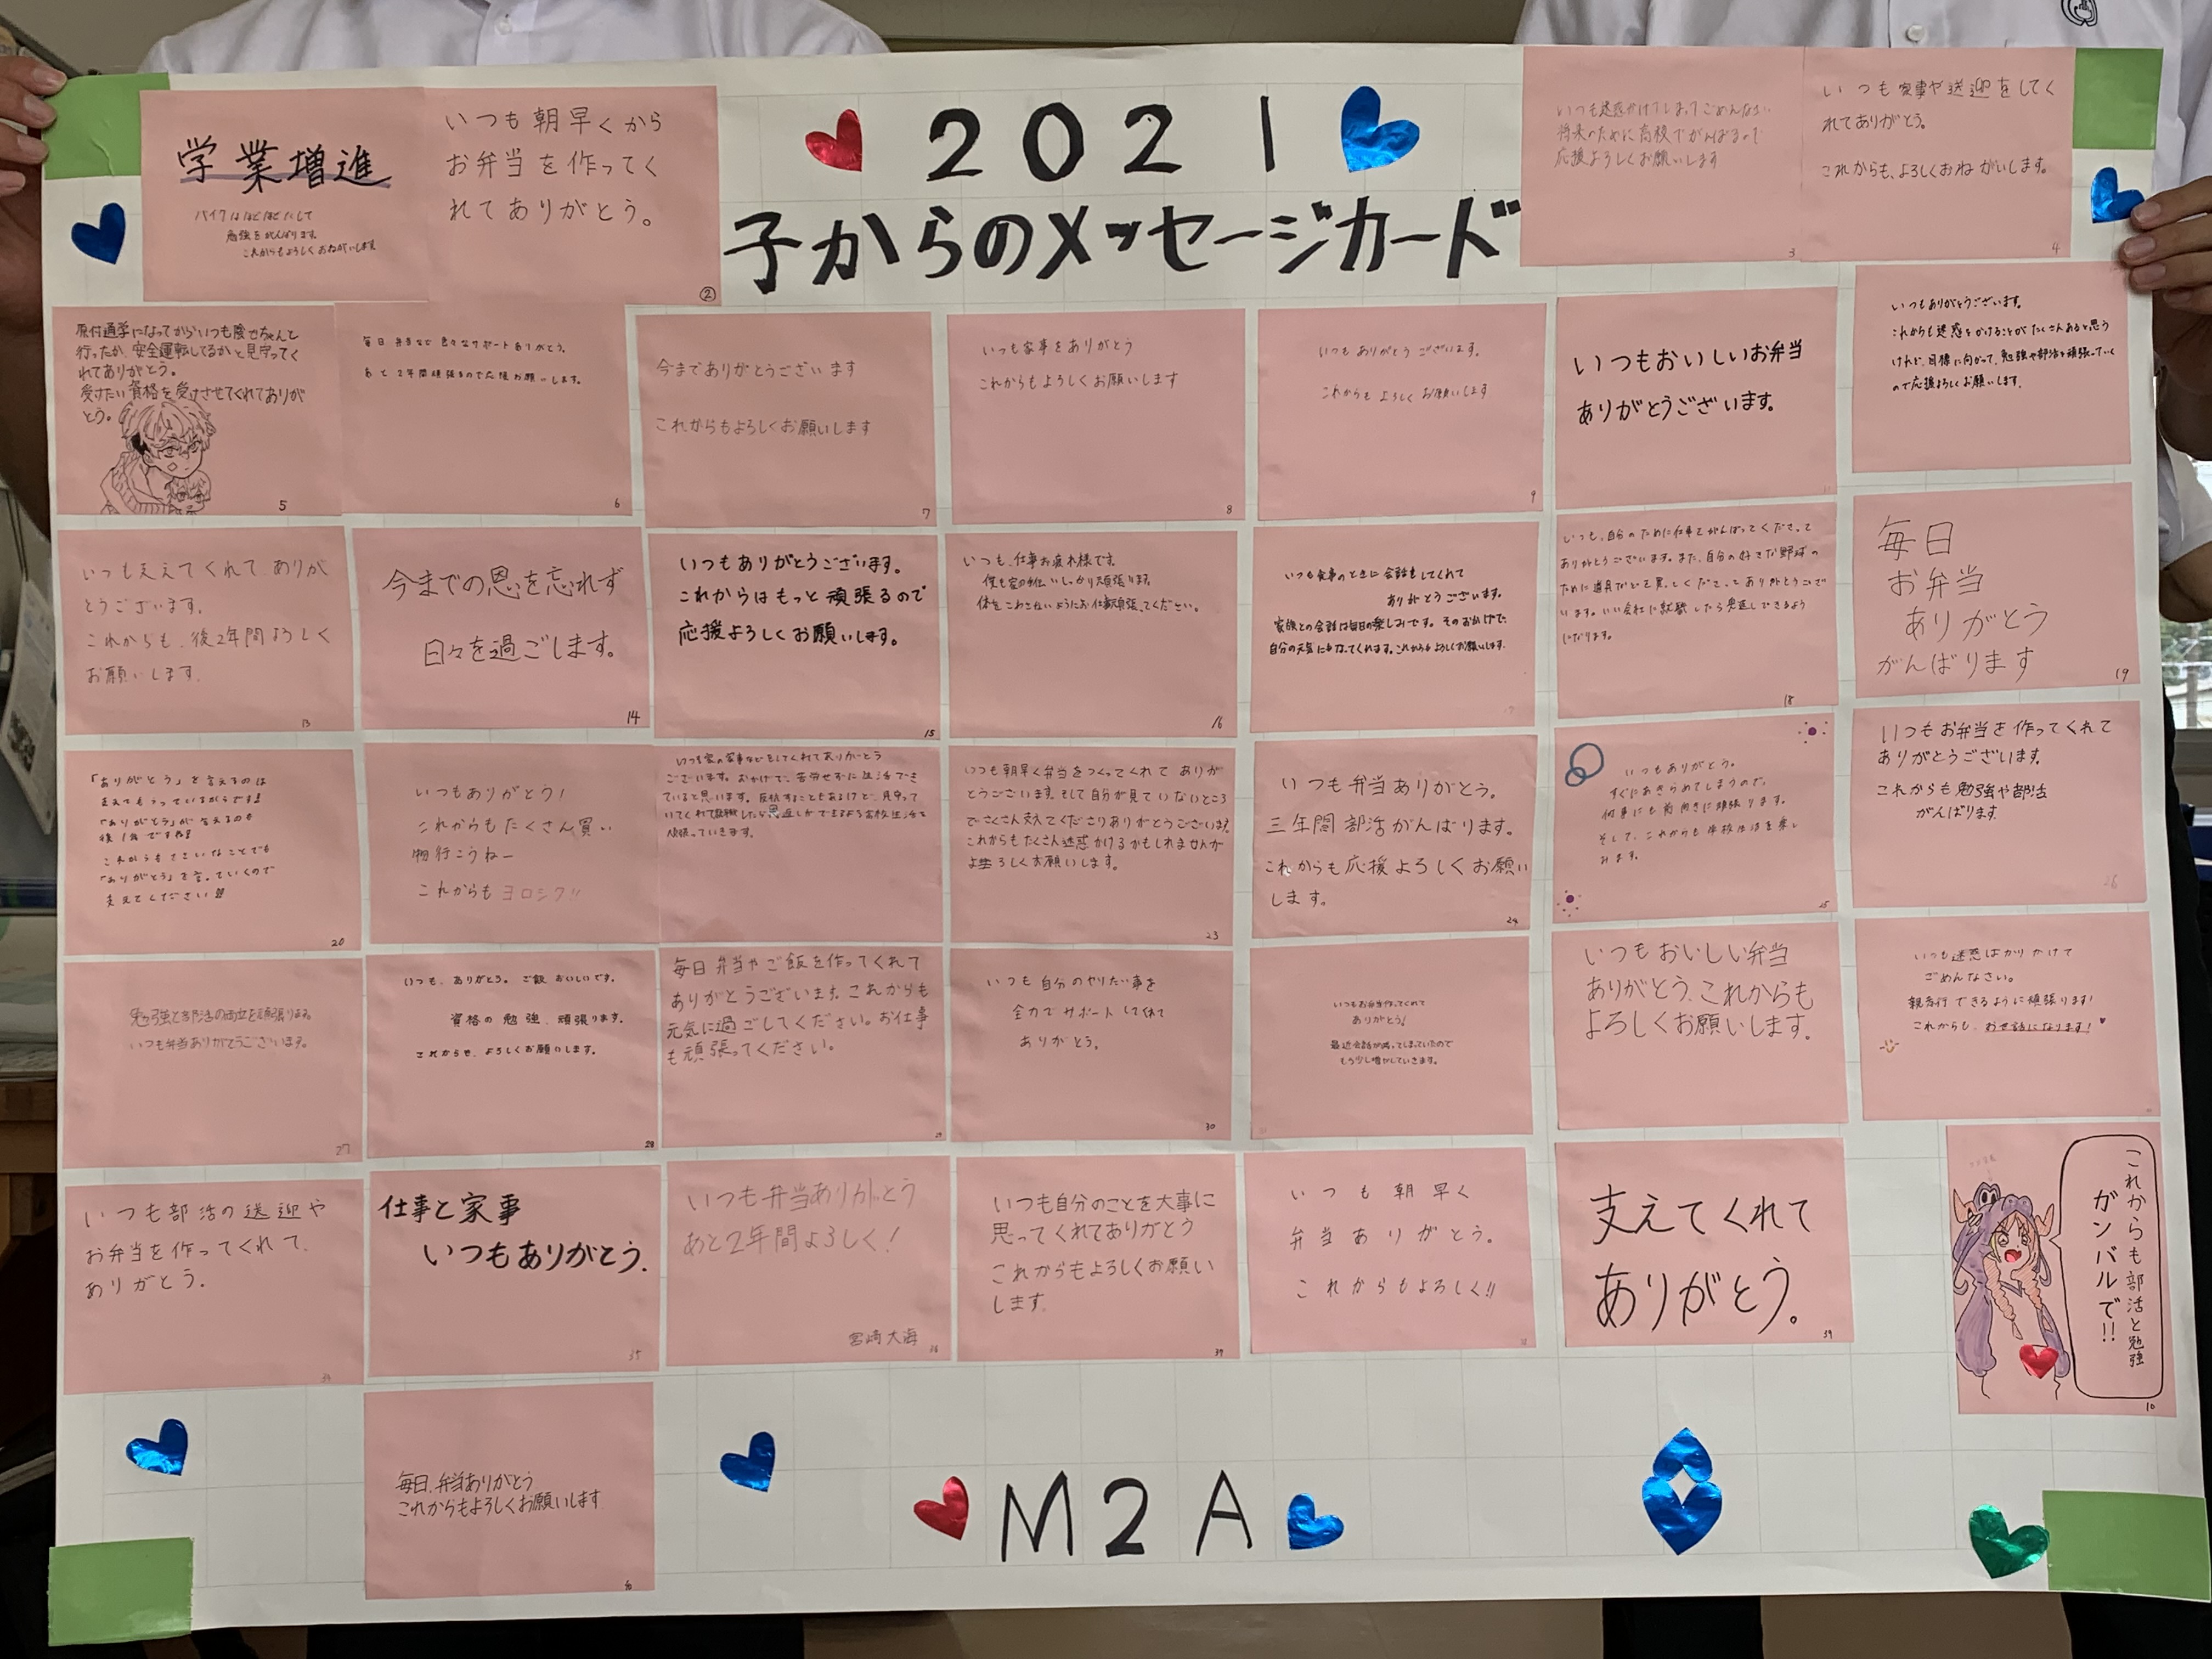 2021
子からのメッセージカード
学業増進
バイクはほどほどにして
勉強をがんばります。
これからもよろしくおねがいします
いつも朝早くから
お弁当を作ってく
れてありがとう。
②
いつも迷惑かけてしまってごめんなさい
将来のために高校でがんばるので
応援よろしくお願いします
3
いつも家事や送迎をしてく
れてありがとう。
これからも、よろしくおねがいします。
4
原付通学になってからいつも陰でちゃんと
行ったか、安全運転してるかと見守ってく
れてありがとう。
受けたい資格を受けさせてくれてありが
とう。
5
毎日弁当など色々なサポートありがとう。
あと2年間頑張るので応援お願いします。
6
今までありがとうございます
これからもよろしくお願いします
7
いつも家事をありがとう
これからもよろしくお願いします
8
いつもありがとうございます。
これからもよろしくお願いします
9
いつもおいしいお弁当
ありがとうございます。
いつもありがとうございます。
これからも迷惑をかけることがたくさんあると思う
けれど、目標に向かって、勉強や部活を頑張っていく
ので応援よろしくお願いします。
いつも支えてくれてありが
とうございます。
これからも、後2年間よろしく
お願いします。
13
今までの恩を忘れず
日々を過ごします。
14
いつもありがとうございます。
これからはもっと頑張るので
応援よろしくお願いします。
15
いつも、仕事お疲れ様です。
僕も家の手伝いしっかり頑張ります。
体をこわさないようにお仕事頑張ってください。
16
いつも食事のときに会話をしてくれて
ありがとうございます。
家族との会話は毎日の楽しみです。そのおかげで、
自分の元気にもなってくれます。これからもよろしくお願いします。
いつも、自分のために仕事をがんばってくださって
ありがとうございます。また、自分の好きな野球の
ために道具などを買ってくださってありがとうござ
います。いい会社に就職したら恩返しできるよう
になります。
18
毎日
お弁当
ありがとう
がんばります
19
「ありがとう」を言えるのは
支えてもらっているからです!
「ありがとう」が言えるのも
後1年ですね!
これからもささいなことでも
「ありがとう」を言っていくので
支えてください!!
20
いつもありがとう!
これからもたくさん買い
物行こうねー
これからもヨロシク!!
いつも家の家事などをしてくれてありがとう
ございます。おかげで、苦労せずに生活でき
ていると思います。反抗することもあるけど、見守って
いてくれて就職したら恩返しができるよう高校生活を
頑張っていきます。
いつも朝早く弁当をつくってくれてありが
とうございます。そして自分が見ていないところ
でたくさん支えてくださりありがとうございます。
これからもたくさん迷惑かけるかもしれませんが
よろしくお願いします。
23
いつも弁当ありがとう。
三年間部活がんばります。
これからも応援よろしくお願い
します。
24
いつもありがとう。
すぐにあきらめてしまうので、
何事にも前向きに頑張ります。
そして、これからも学校生活を楽し
みます。
25
いつもお弁当を作ってくれて
ありがとうございます。
これからも勉強や部活
がんばります。
26
勉強と部活の両立を頑張ります。
いつも弁当ありがとうございます。
27
いつも、ありがとう。ご飯おいしいです。
資格の勉強、頑張ります。
これからも、よろしくお願いします。
28
毎日弁当やご飯を作ってくれて
ありがとうございます。これからも
元気に過ごしてください。お仕事
も頑張ってください。
29
いつも自分のやりたい事を
全力でサポートしてくれて
ありがとう。
30
いつもお弁当作ってくれて
ありがとう!
最近会話が減ってしまっていたので
もう少し増やしていきます。
いつもおいしい弁当
ありがとう。これからも
よろしくお願いします。
いつも迷惑ばかりかけて
ごめんなさい。
親孝行できるように頑張ります!
これからも、お世話になります!
いつも部活の送迎や
お弁当を作ってくれて、
ありがとう。
34
仕事と家事
いつもありがとう.
35
いつも弁当ありがとう
あと2年間よろしく!
宮崎大海
36
いつも自分のことを大事に
思ってくれてありがとう
これからもよろしくお願い
します。
37
いつも朝早く
弁当ありがとう。
これからもよろしく!!
38
支えてくれて
ありがとう。
39
これからも部活と勉強
ガンバルで!!
10
毎日、弁当ありがとう
これからもよろしくお願いします
40
M2A